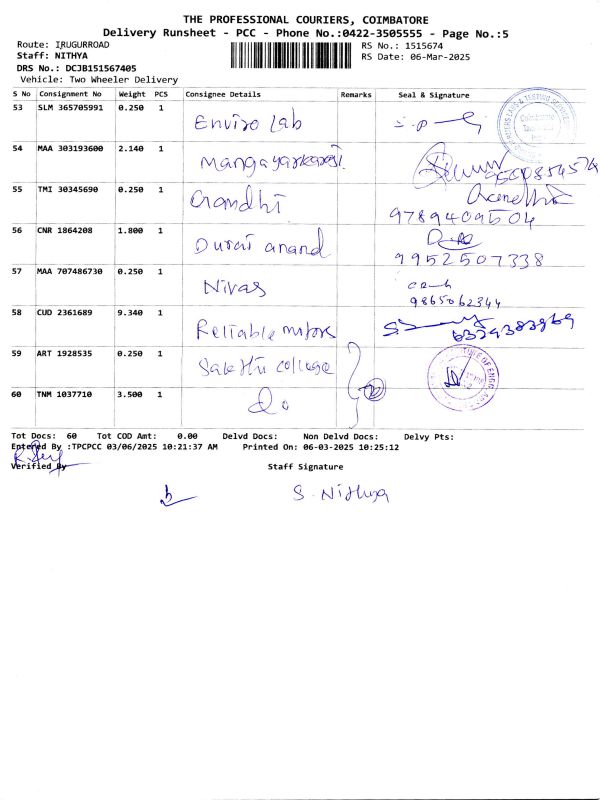 THE PROFESSIONAL COURIERS, COIMBATORE
Delivery Runsheet - PCC - Phone No.:0422-3505555 - Page No.:5
Route: IRUGURROAD RS No.: 1515674
Staff: NITHYA RS Date: 06-Mar-2025
DRS No.: DCJB151567405
Vehicle: Two Wheeler Delivery
S No Consignment No Weight PCS Consignee Details Remarks Seal & Signature
53 SLM 365705991 0.250 1 Enviro Lab
54 MAA 303193600 2.140 1 Mangayarkarasi
55 TMI 30345690 0.250 1 Gandhi
9789409504
56 CNR 1864208 1.800 1 Durai anand
9952507338
57 MAA 707486730 0.250 1 Nivas
9865062344
58 CUD 2361689 9.340 1 Reliable motors
6379383969
59 ART 1928535 0.250 1 Sakthi college
60 TNM 1037710 3.500 1 Do
Tot Docs: 60 Tot COD Amt: 0.00 Delvd Docs: Non Delvd Docs: Delvy Pts:
Entered By :TPCPCC 03/06/2025 10:21:37 AM Printed On: 06-03-2025 10:25:12
Verified By Staff Signature
S. Nithya